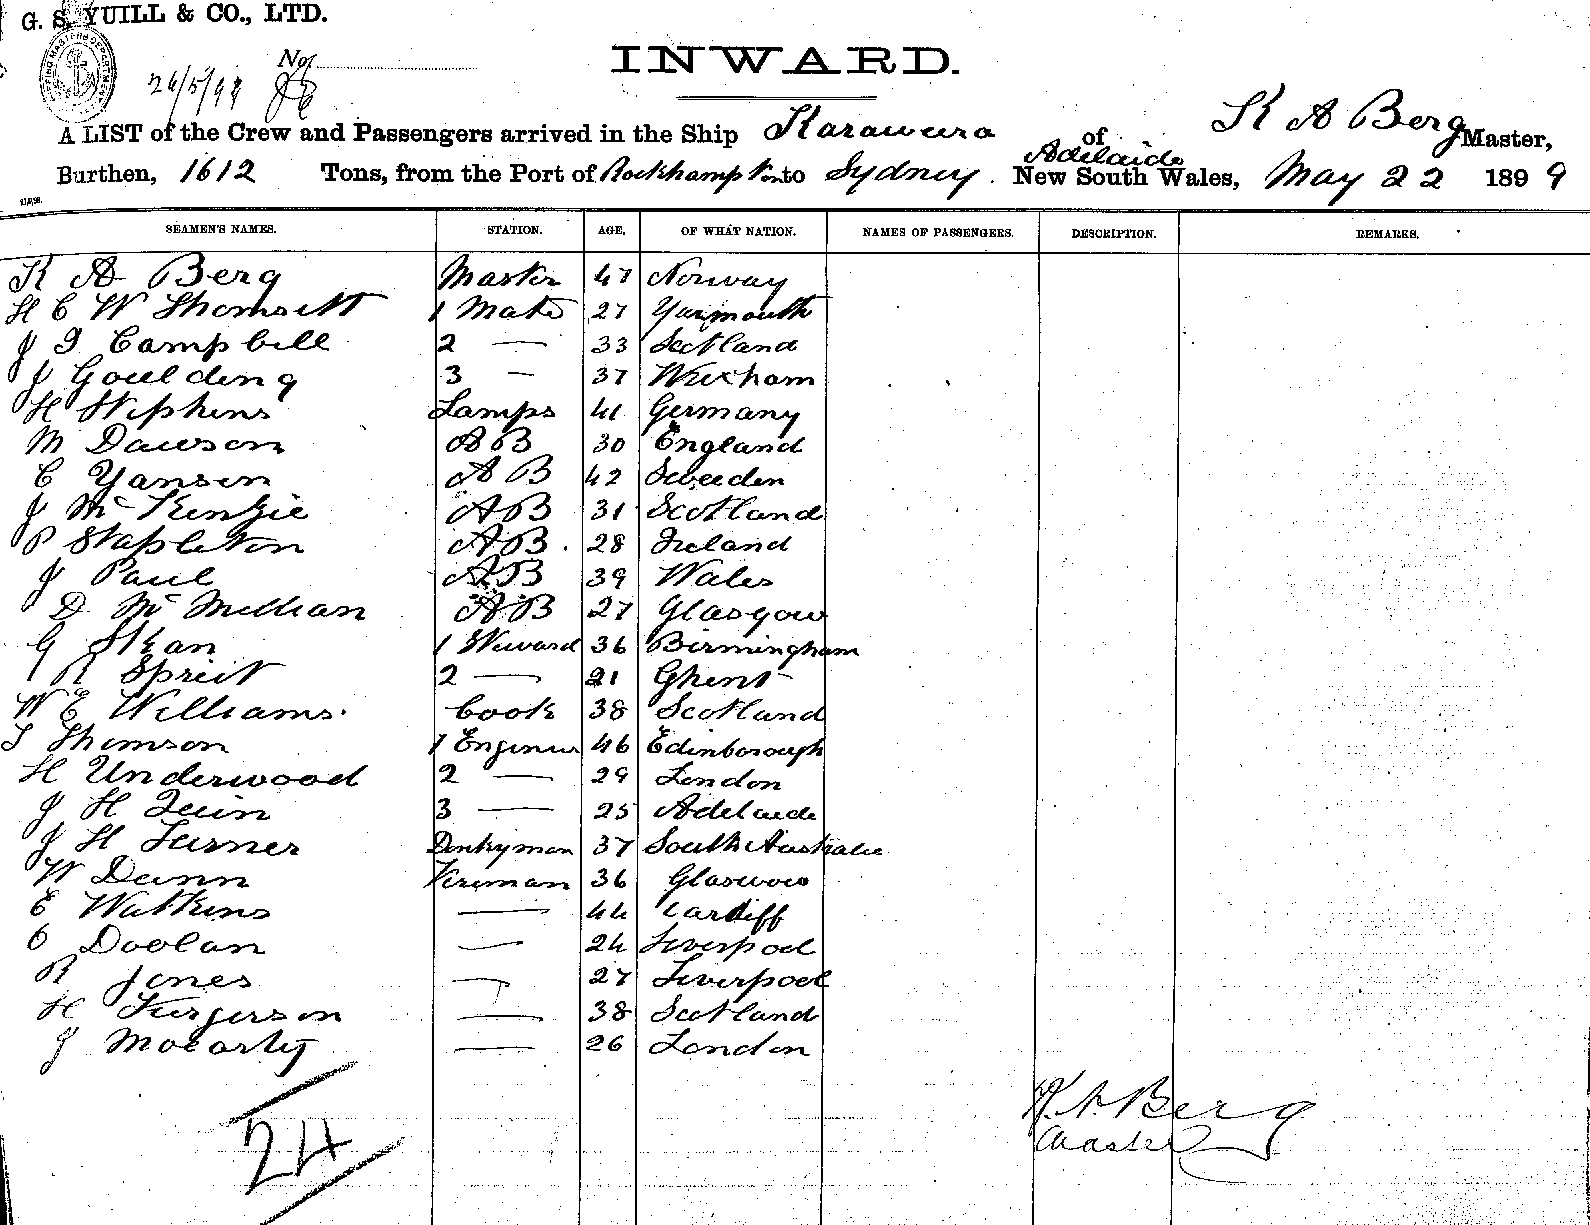 G. S. YUILL & CO., LTD.
No.
26/5/99
INWARD.
K A Berg
A LIST of the Crew and Passengers arrived in the Ship Karaweera of Master,
Adelaide
Burthen, 1612 Tons, from the Port of Rockhampton to Sydney. New South Wales, May 22 1899
SEAMEN'S NAMES. STATION. AGE. OF WHAT NATION. NAMES OF PASSENGERS. DESCRIPTION. REMARKS.
K A Berg Master 47 Norway
H C W Thomsett 1 Mate 27 Yarmouth
J G Campbell 2 — 33 Scotland
J Goulding 3 — 37 Wrexham
H Stephens Lamps 41 Germany
M Dawson AB 30 England
C Yansen AB 42 Sweeden
J McKenzie AB 31 Scotland
P Stapleton AB. 28 Ireland
J Paul AB 39 Wales
D McMillan AB 27 Glasgow
G Skan 1 Steward 36 Birmingham
R Spreit 2 — 21 Ghent
W E Williams. Cook 38 Scotland
T Thomson 1 Engineer 46 Edinborough
H Underwood 2 — 29 London
J H Quin 3 — 25 Adelaide
J H Turner Donkyman 37 South Australia
W Dunn Fireman 36 Glasgow
E Watkins — 44 Cardiff
O Doolan — 24 Liverpool
R Jones — 27 Liverpool
H Furgerson — 38 Scotland
J Mocarty — 26 London
24
K. A. Berg
Master